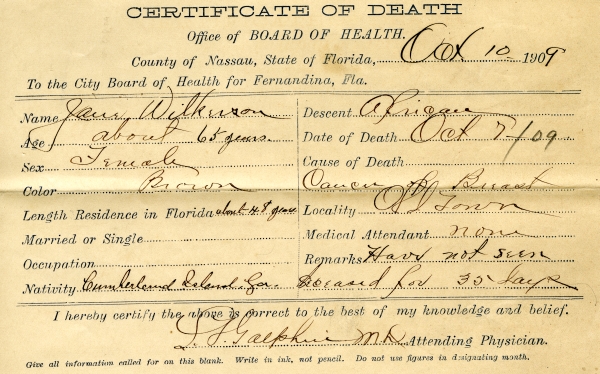 CERTIFICATE OF DEATH
Office of BOARD OF HEALTH.
County of Nassau, State of Florida, Oct 10 1909
To the City Board of Health for Fernandina, Fla.
Name Jane Wilkerson Descent African
Age about 65 years. Date of Death Oct 7-/09
Sex Female Cause of Death
Color Brown Cancer of Breast
Length Residence in Florida about 48 years Locality Town
Married or Single Medical Attendant none
Occupation Remarks Have not seen
Nativity Cumberland Island. Ga. deceased for 35 days
I hereby certify the above is correct to the best of my knowledge and belief.
Galphin M.D. Attending Physician.
Give all information called for on this blank. Write in ink, not pencil. Do not use figures in designating month.